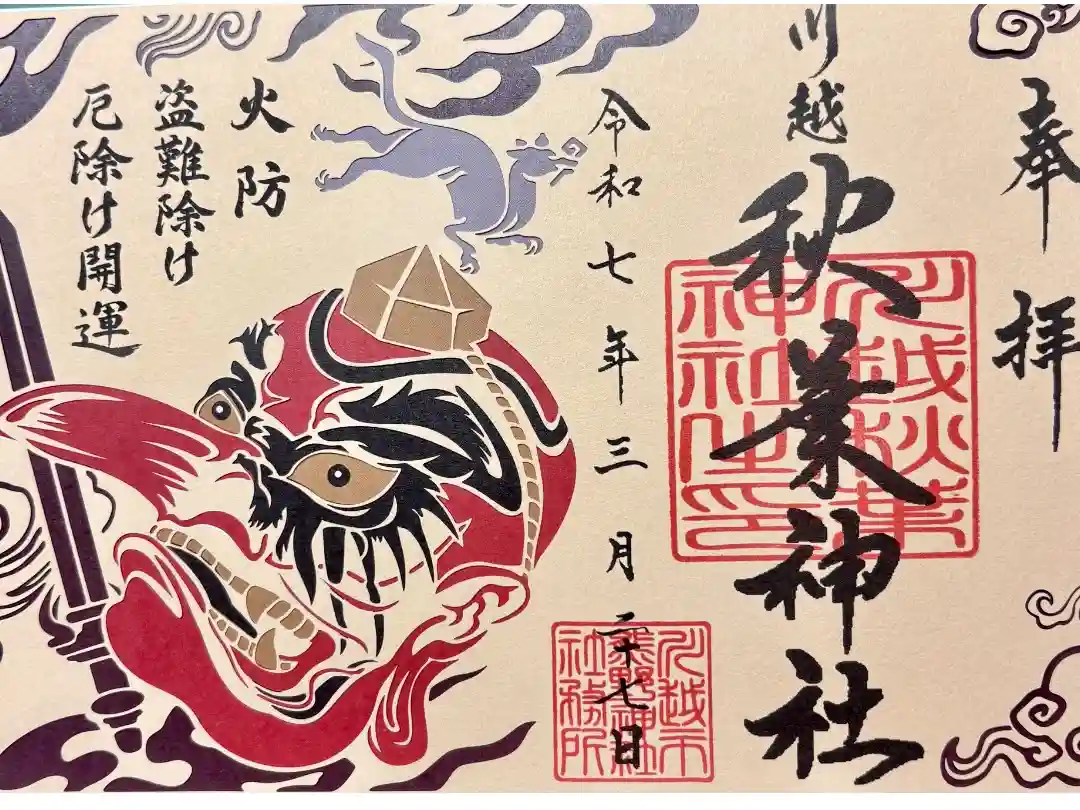 奉拝
川越
秋葉神社
川越秋葉
神社之印
令和七年三月二十七日
川越市
熊野神社
社務所
火防
盗難除け
厄除け開運